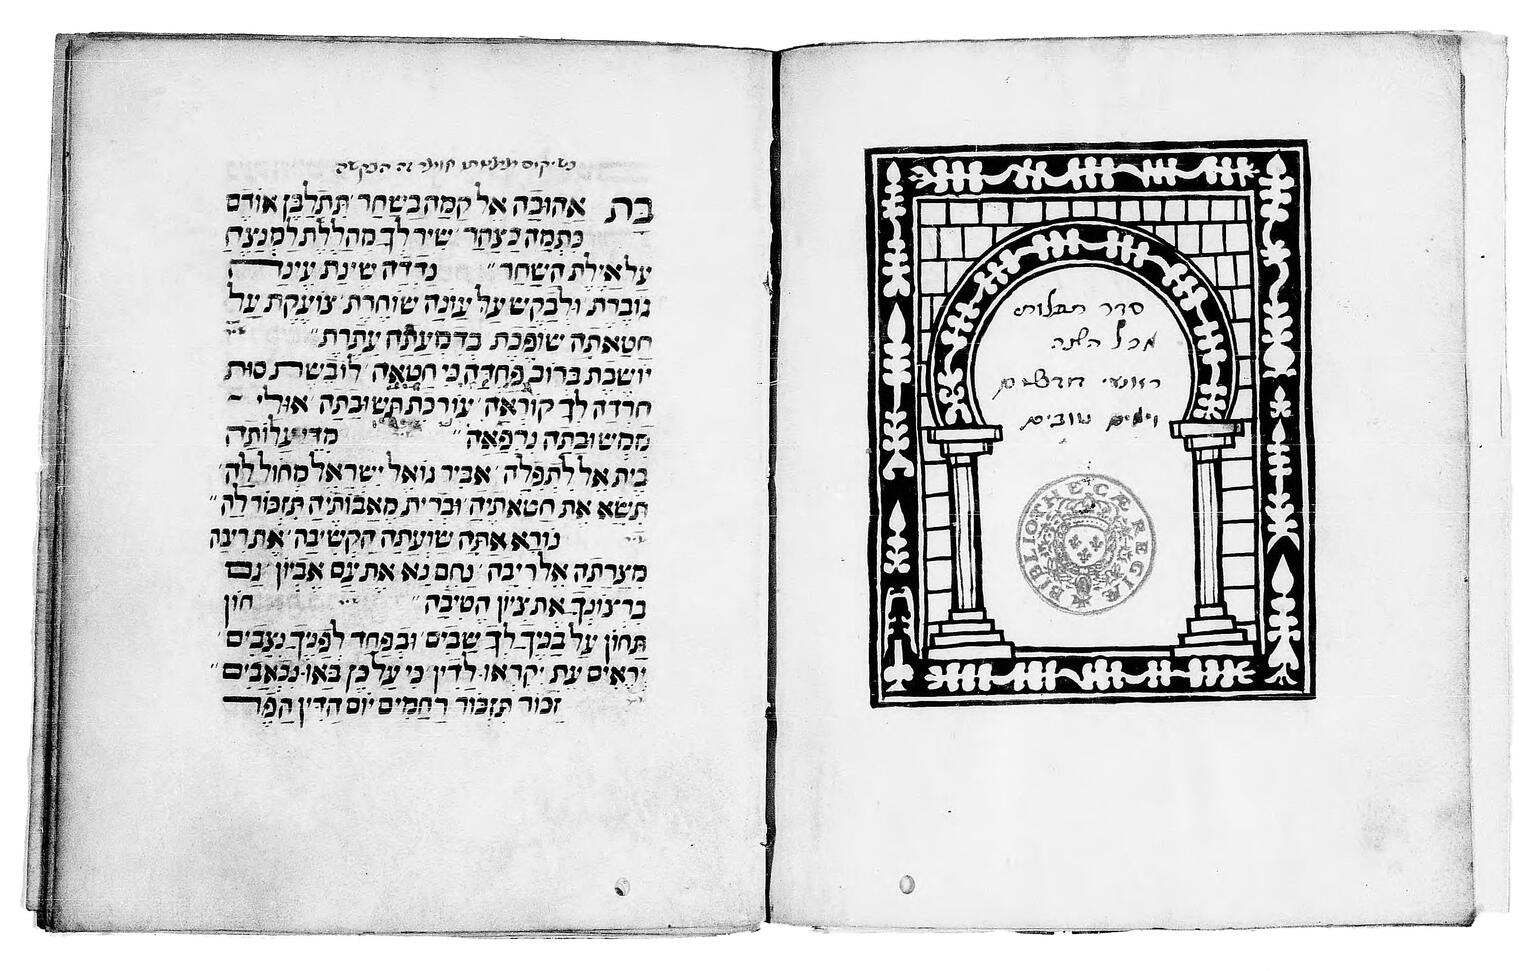 סדר תפלות
מכל השנה
ראשי חדשים
וימים טובים
BIBLIOTHECÆ REGIÆ
זה הבקשה
בת אהובה אל קמה בשחר תתלבן אודם
כתמה כצהר שיר לך מהללת למנצח
על אילת השחר נדדה שינת עינה
גוברת ולבקש על עונה שוחרת צועקת על
חטאתה שופכת בדמעתה עתרת
יושבת ברוב פחדה כי חטאה לובשת סות
חרדה לך קוראה עורכת תשובתה אולי
ממשובתה נרפאה מדי עלותה
בית אל לתפלה אביר גואל ישראל מחול לה
תשא את חטאתיה וברית מאבותיה תזכור לה
נורא אתה שועתה הקשיבה את ריבה
מצרתה אל ריבה נחם נא את עם אביון גם
ברצונך את ציון הטיבה חון
תחון על בניך לך שבים ובפחד לפניך נצבים
יראים עת יקראו לדין כי על כן באו נכאבים
זכור תזכור רחמים יום הדין הפר